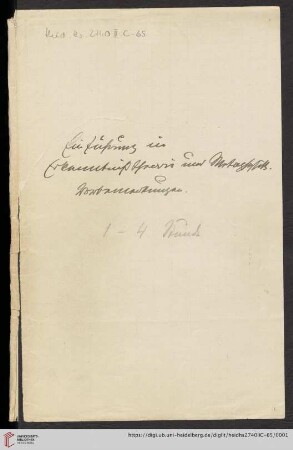 Heid. Hs. 2740 II C-65
Einführung in
Erkenntnißtheorie und Metaphysik.
Vorbemerkungen.
1 – 4 Stunde
UNIVERSITÄTS-
BIBLIOTHEK
HEIDELBERG
https://digi.ub.uni-heidelberg.de/diglit/heidhs2740IIC-65/0001